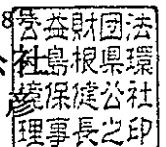 8号
社
彦
公益財団法
島根県環
境保健公社
理事長之印